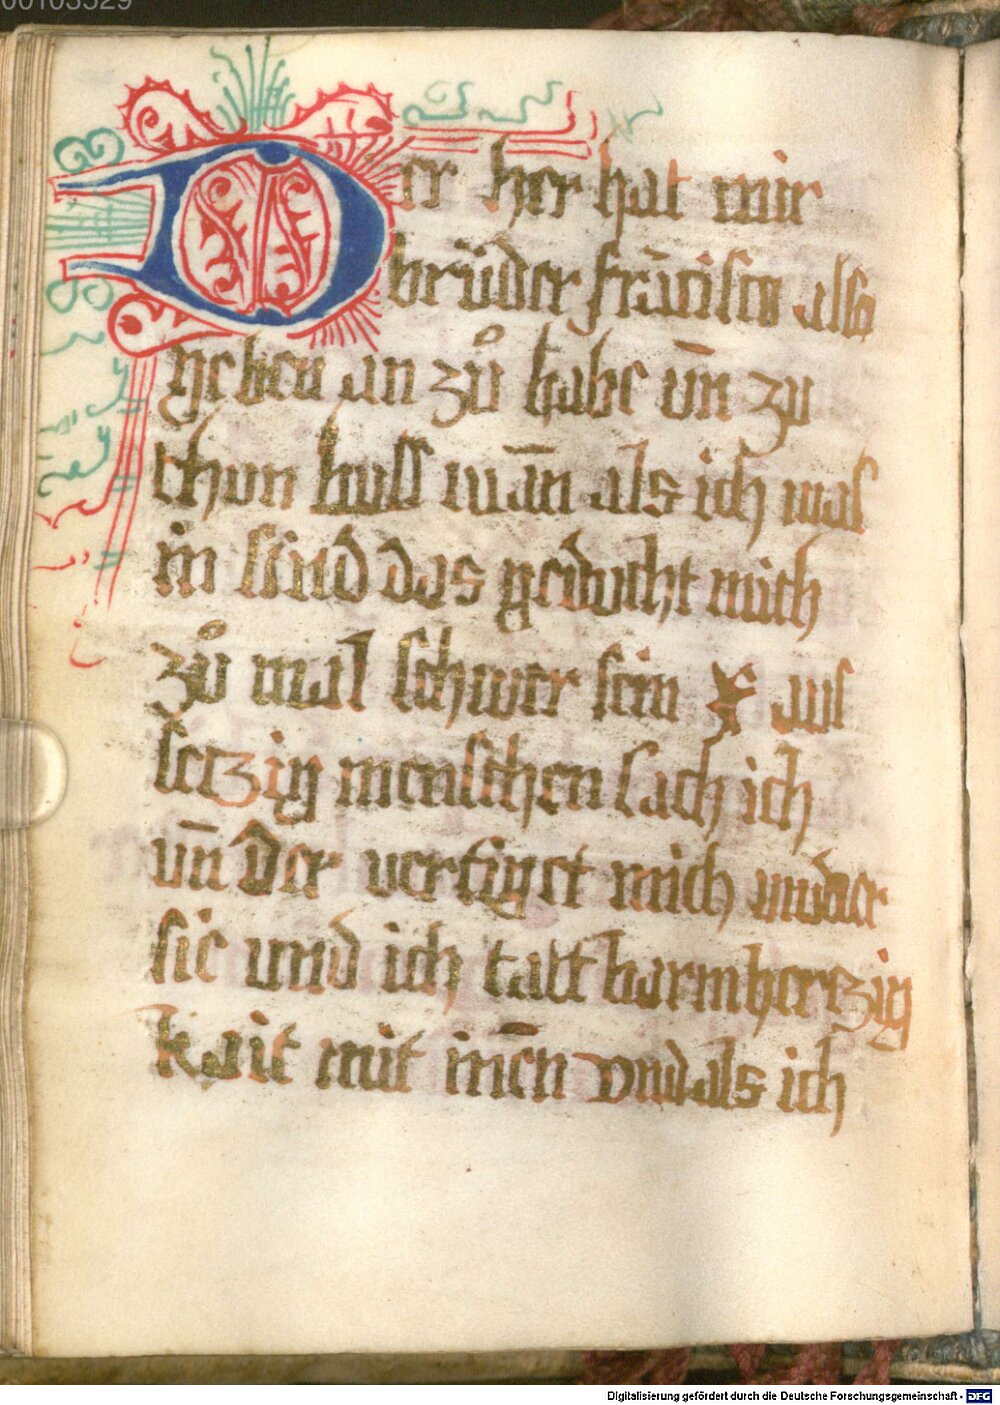 00103529
Der her hat mir
brůder frācisco also
geben an zů habe vn̄ zu
thun buss wān als ich was
in sünd das geducht mich
zů mal schwer sein x aus
setzig menschen sach ich
vn̄ der her fürt mich under
sie und ich tatt barmhertzig
kait mit inēn vnd als ich
Digitalisierung gefördert durch die Deutsche Forschungsgemeinschaft - DFG